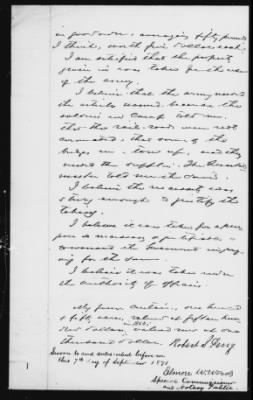 in good order, averaging fifty pounds
I think, worth five dollars each.
I am satisfied that the property
given in was taken for the use
of the army.
I believe that the army needed
the articles named because the
soldiers in camp told me
that the rail-road were not
connected, that some of the
bridges were torn up, and they
needed the supplies. The Quarter
master told me the same.
I believe the necessity was
strong enough to justify the
taking.
I believe it was taken for a purpose
so necessary
the Government in
for the same.
I believe it was taken under
the authority of officers.
My farm contains, one hundred
& fifty acres, valued at fifteen hun-
dred dollars, in 1861; valued now at one
thousand dollars. Robert S. Perry
Sworn to and subscribed before me
this 7th day of September 1871
Elmore
Special Commissioner
and Notary Public